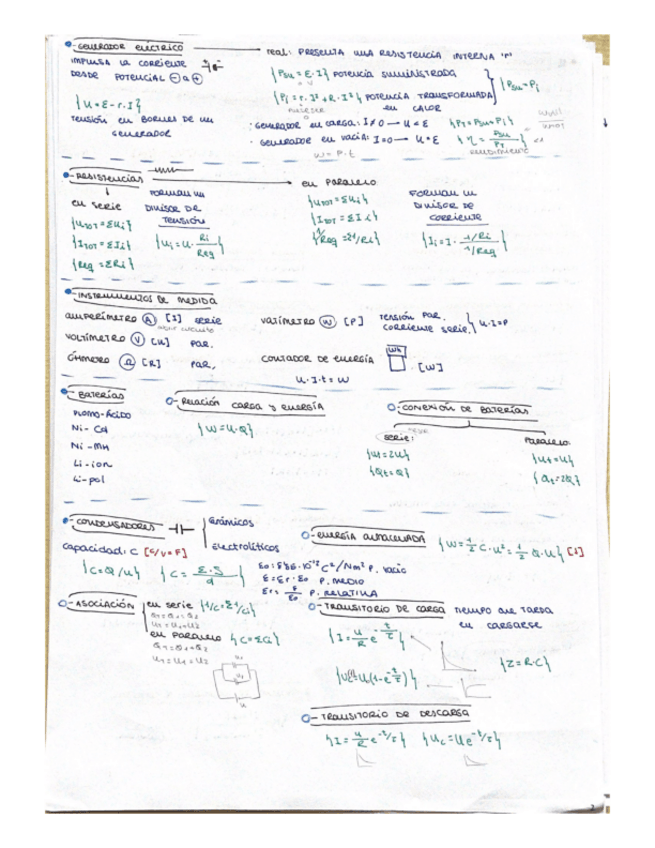 - GENERADOR ELÉCTRICO
real: PRESENTA UNA RESISTENCIA INTERNA "r"
IMPULSA LA CORRIENTE
DESDE POTENCIAL ⊖ a ⊕
{Psu = E·I} POTENCIA SUMINISTRADA
{Pi = r·I² + R·I²} POTENCIA TRANSFORMADA EN CALOR
{Psu = Pi
{U = E - r·I}
TENSIÓN EN BORNES DE UN GENERADOR
· GENERADOR EN CARGA: I ≠ 0 → U < E
· GENERADOR EN VACÍA: I = 0 → U = E
W = P·t
rendimiento
- RESISTENCIAS
en serie
FORMAN UN DIVISOR DE TENSIÓN
{UTOT = ΣUi}
{ITOT = ΣIi}
{Req = ΣRi}
{Ui = U· Ri/Req}
en PARALELO
FORMAN UN DIVISOR DE CORRIENTE
{UTOT = ΣUi}
{ITOT = ΣI·i}
{1/Req = Σ1/Ri}
{Ii = I· 1/Ri / 1/Req}
- INSTRUMENTOS DE MEDIDA
AMPERÍMETRO (A) [I] SERIE
VOLTÍMETRO (V) [U] PAR.
ÓHMETRO (Ω) [R] PAR.
VATÍMETRO (W) [P] TENSIÓN PAR. CORRIENTE SERIE. } U·I=P
CONTADOR DE ENERGÍA Wh · [W]
U·I·t = W
- BATERÍAS
PLOMO-ÁCIDO
Ni - Cd
Ni - MH
Li - ion
Li - pol
- RELACIÓN CARGA Y ENERGÍA
{W = U·Q}
- CONEXIÓN DE BATERÍAS
SERIE:
{Ut = 2U}
{Qt = Q}
PARALELO
{Ut = U}
{Qt = 2Q}
- CONDENSADORES
Cerámicos
Electrolíticos
Capacidad: C [C/V = F]
{C = Q/U} {C = E·S/d}
C²/Nm² P. vacío
E = Er·Eo P. MEDIO
Er = E/Eo P. RELATIVA
- ENERGÍA ALMACENADA {W = 1/2 C·U² = 1/2 Q·U} [J]
- ASOCIACIÓN
en serie {1/C = Σ1/Ci}
en PARALELO
- TRANSITORIO DE CARGA TIEMPO QUE TARDA EN CARGARSE
{I = U/R e^-t/τ}
{Z = R·C}
- TRANSITORIO DE DESCARGA
{I = U/R e^-t/τ} {Uc = U e^-t/τ}